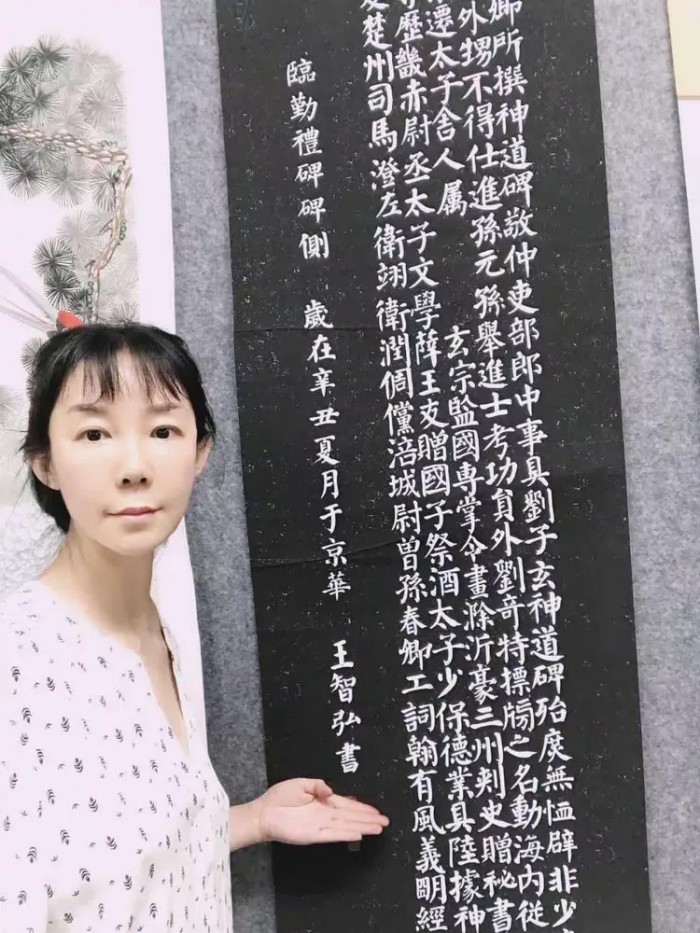 卿所撰神道碑敬仲吏部郎中事具劉子玄神道碑殆庶無恤辟非少
外甥不得仕進孫元孫舉進士考功員外劉奇特標牓之名動海内從
遷太子舍人属 玄宗監國專掌令畫滁沂豪三州刺史贈秘書
歷畿赤尉丞太子文學薛王友贈國子祭酒太子少保德業具陸據神
楚州司馬澄左衛翊衛潤倜儻涪城尉曾孫春卿工詞翰有風義明經
臨勤禮碑碑側 歲在辛丑夏月于京華 王智弘書